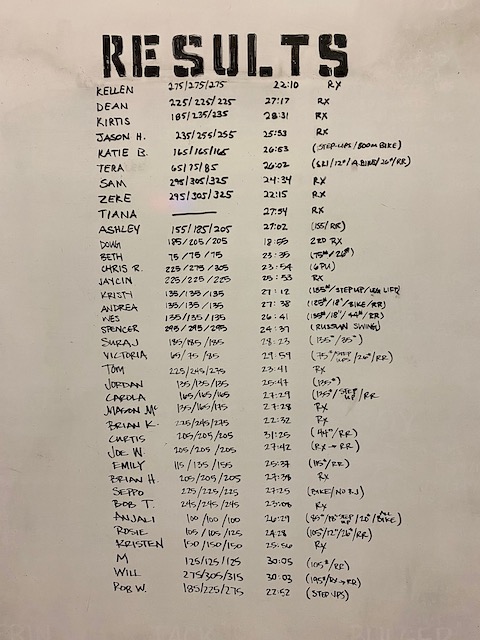 RESULTS
KELLEN 275/275/275 22:10 RX
DEAN 225/225/225 27:17 RX
KIRTIS 185/235/235 28:31 RX
JASON H. 235/255/255 25:53 RX
KATIE B. 165/165/165 26:53 (STEP-UPS/800M BIKE)
TERA 65/75/85 26:02
SAM 295/305/325 24:34 RX
ZEKE 295/305/325 22:15 RX
TIANA 27:54 RX
ASHLEY 155/185/205 27:02 (155/RR)
DOUG 185/205/205 18:55 2ND RX
BETH 75/75/75 23:35
CHRIS R. 225/275/305 23:54 (6PU)
JAYCIN 225/225/225 25:53 RX
KRISTY 135/135/135 27:12
ANDREA 135/135/135 27:38
WES 135/135/135 26:41
SPENCER 295/295/295 24:37 (RUSSIAN SWING)
SURAJ 185/185/185 28:23
VICTORIA 65/75/85 29:59
TOM 225/245/275 23:41 RX
JORDAN 135/135/135 25:47 (135#)
CAROLA 165/165/165 27:29 (135#/STEP UP/RR
MASON MC 135/165/175 27:28 RX
BRIAN K. 225/245/275 22:32 RX
CURTIS 205/205/205 31:25 (44#/RR)
JOE W. 205/205/205 27:42 (RX→RR)
EMILY 115/135/155 25:37 (115#/RR)
BRIAN H. 205/205/205 27:38 RX
SEPPO 225/225/225 27:25 (BIKE/NO BJ)
BOB T. 245/245/245 23:08 RX
ANJALI 100/100/100 26:29
ROSIE 105/105/125 24:28 (105/12"/26#/RR)
KRISTEN 150/150/150 25:56 RX
M 125/125/125 30:05 (105#/RR)
WILL 275/305/315 30:03 (195#/RX→RR)
ROB W. 185/225/275 22:52 (STEP UPS)